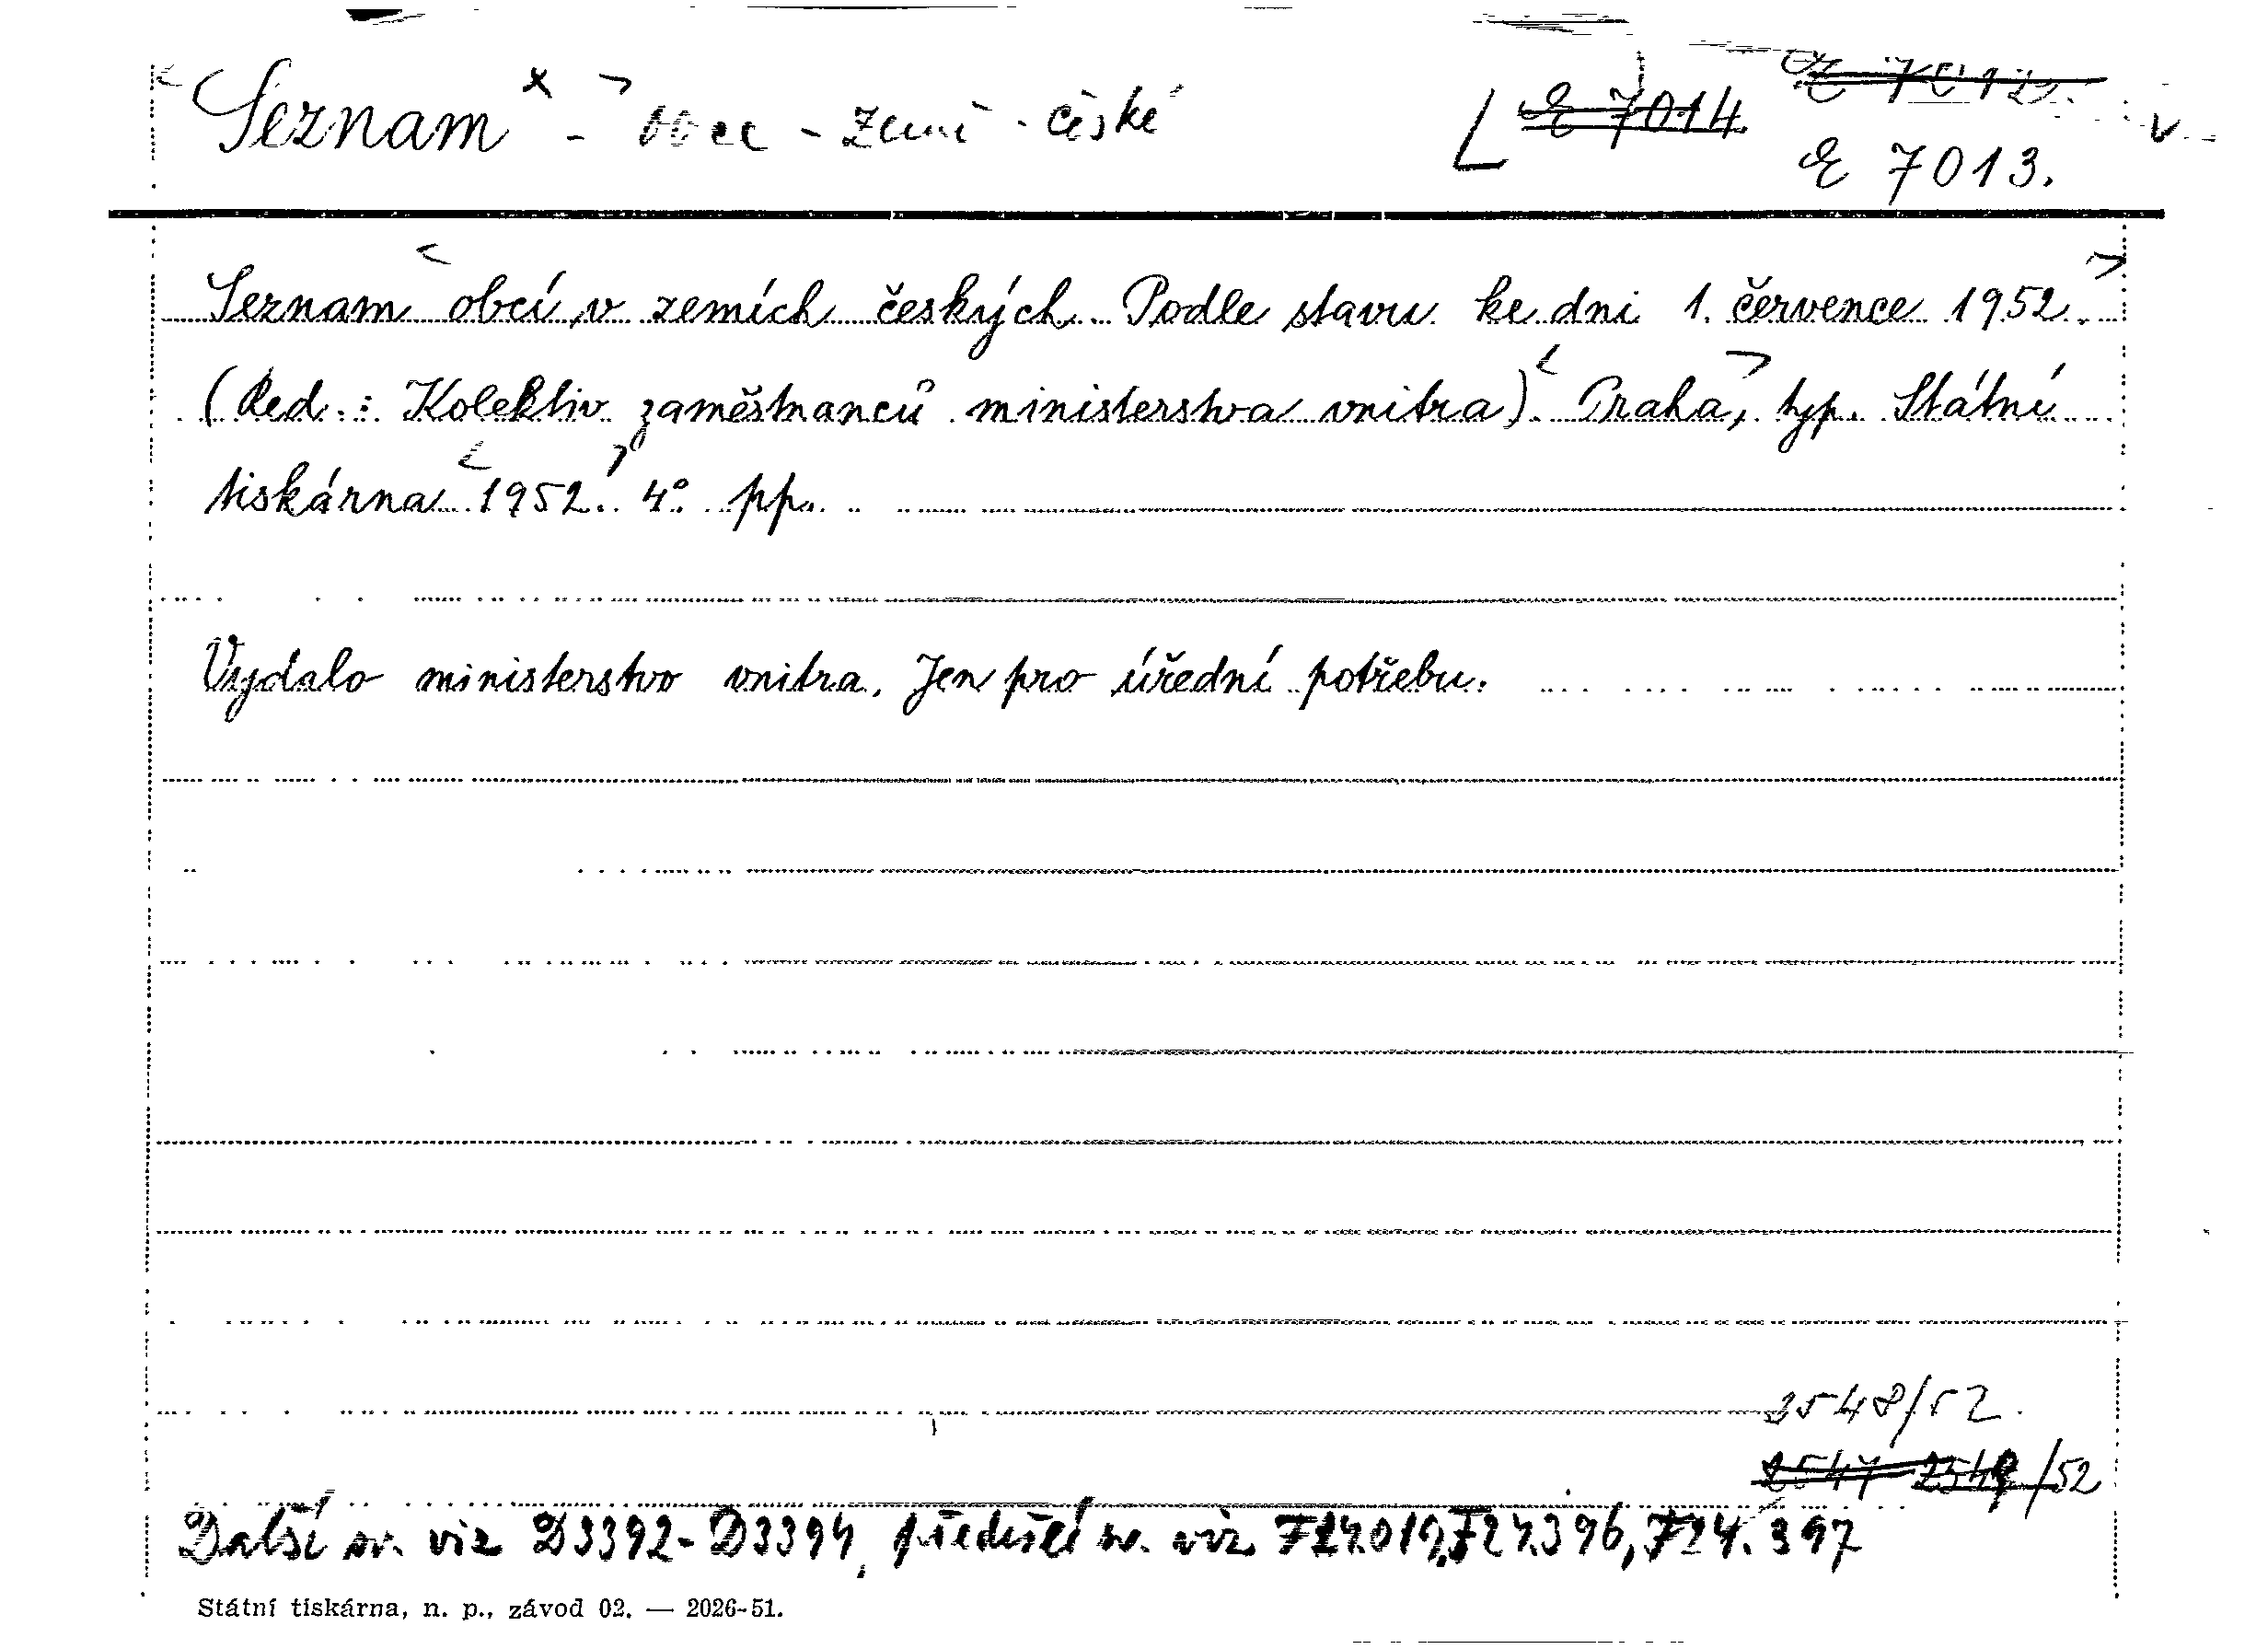 Seznam - obec - země - české
E 7014. E 7012.
E 7013.
Seznam obcí v zemích českých. Podle stavu ke dni 1. července 1952.
(Red.: Kolektiv zaměstnanců ministerstva vnitra). Praha, typ. Státní
tiskárna 1952. 4° pp.
Vydalo ministerstvo vnitra. Jen pro úřední potřebu.
2548/52.
2547-2549/52
Další sv. viz D3392-D3394, předešlé sv. viz F24.019, F24.396, F24.397
Státní tiskárna, n. p., závod 02. — 2026-51.